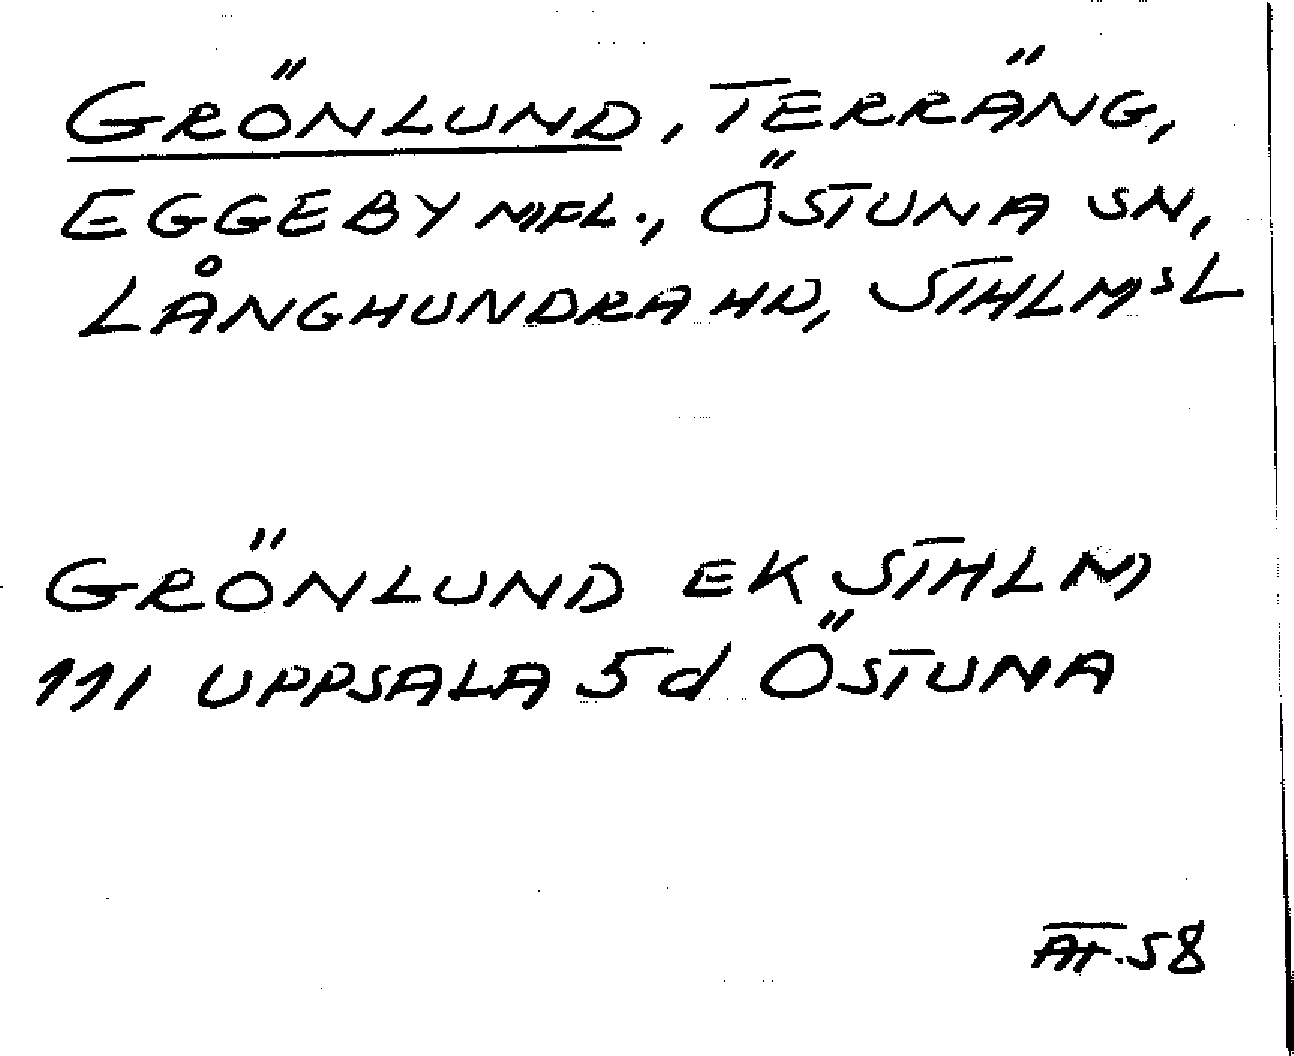 GRÖNLUND, TERRÄNG,
EGGEBY MFL., ÖSTUNA SN,
LÅNGHUNDRA HD, STHLMSL
GRÖNLUND EK STHLM
111 UPPSALA 5d ÖSTUNA
AT.58